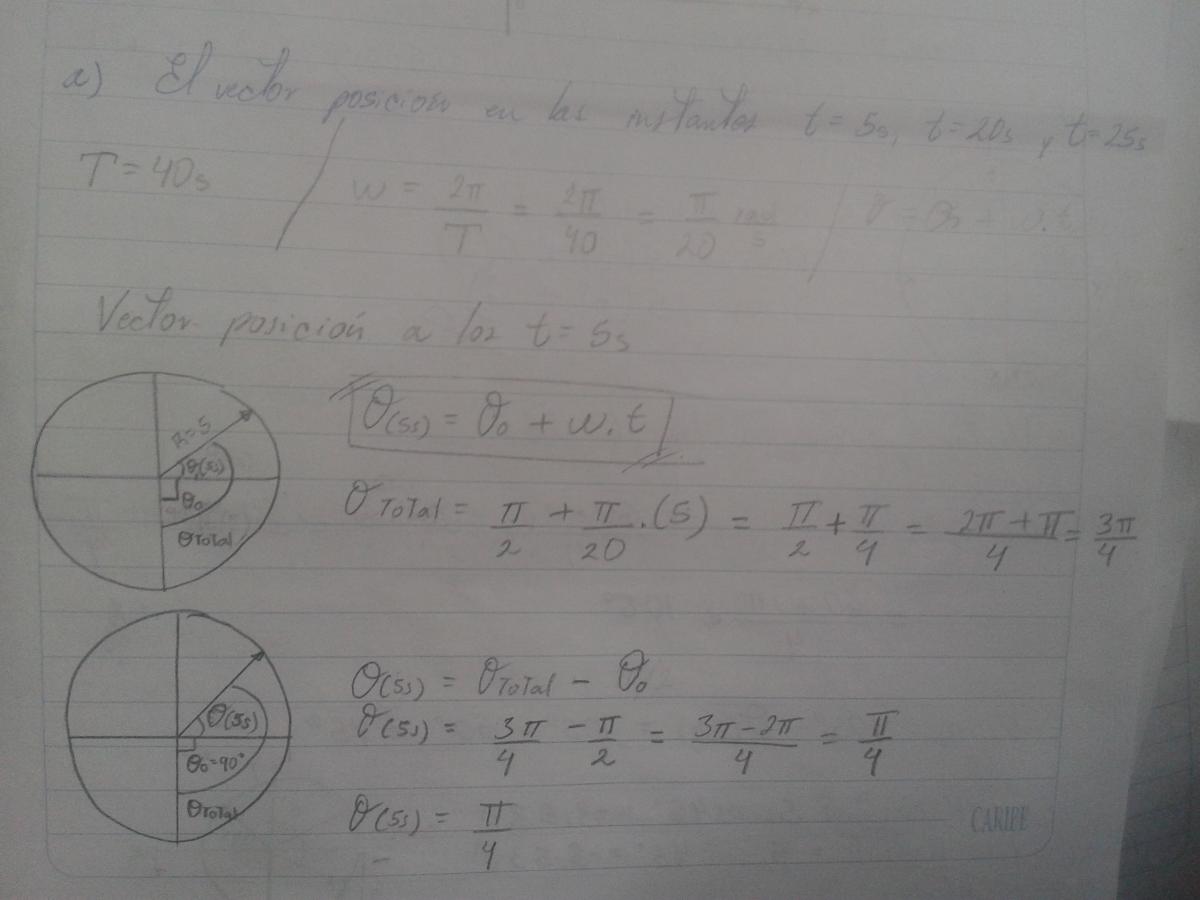 a) El vector posición en los instantes t = 5s, t = 20s y t = 25s
T = 40s / w = 2π/T = 2π/40 = π/20 rad/s / θ = θ₀ + w.t
Vector posición a los t = 5s
R = 5
θ(5s)
θ₀
θTotal
θ(5s) = θ₀ + w.t
θTotal = π/2 + π/20 .(5) = π/2 + π/4 = 2π + π/4 = 3π/4
θ(5s)
θ₀ = 90°
θTotal
θ(5s) = θTotal - θ₀
θ(5s) = 3π/4 - π/2 = 3π - 2π/4 = π/4
θ(5s) = π/4
CARIBE